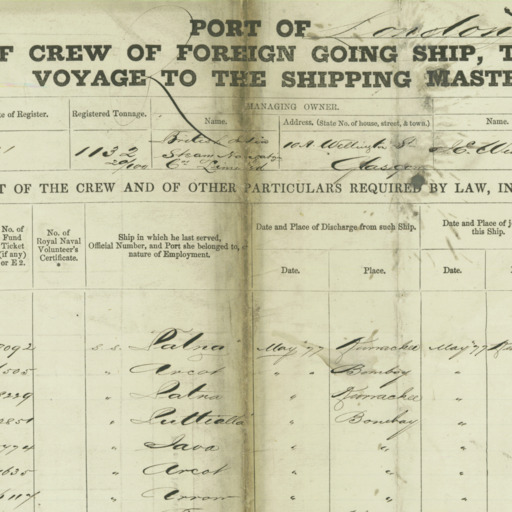 PORT OF London
F CREW OF FOREIGN GOING SHIP, T
VOYAGE TO THE SHIPPING MASTE
MANAGING OWNER.
e of Register. Registered Tonnage. Name. Address, (State No. of house, street, & town.) Name.
1132 British India 10A Wellington St
20/100 Steam Navigatn Glasgow
Co Limited
T OF THE CREW AND OF OTHER PARTICULARS REQUIRED BY LAW, IN
No. of Fund Ticket (if any) or E 2. No. of Royal Naval Volunteer's Certificate. Ship in which he last served, Official Number, and Port she belonged to, or nature of Employment. Date and Place of Discharge from such Ship. Date and Place of j this Ship.
Date. Place. Date.
092 s.s. Patna May '77 Kurrachee May '77
505 " Arcot " " Bombay "
229 " Patna " Kurrachee "
851 " " Bombay "
" Java " " "
635 " Arcot " " "
" Arrow " " "